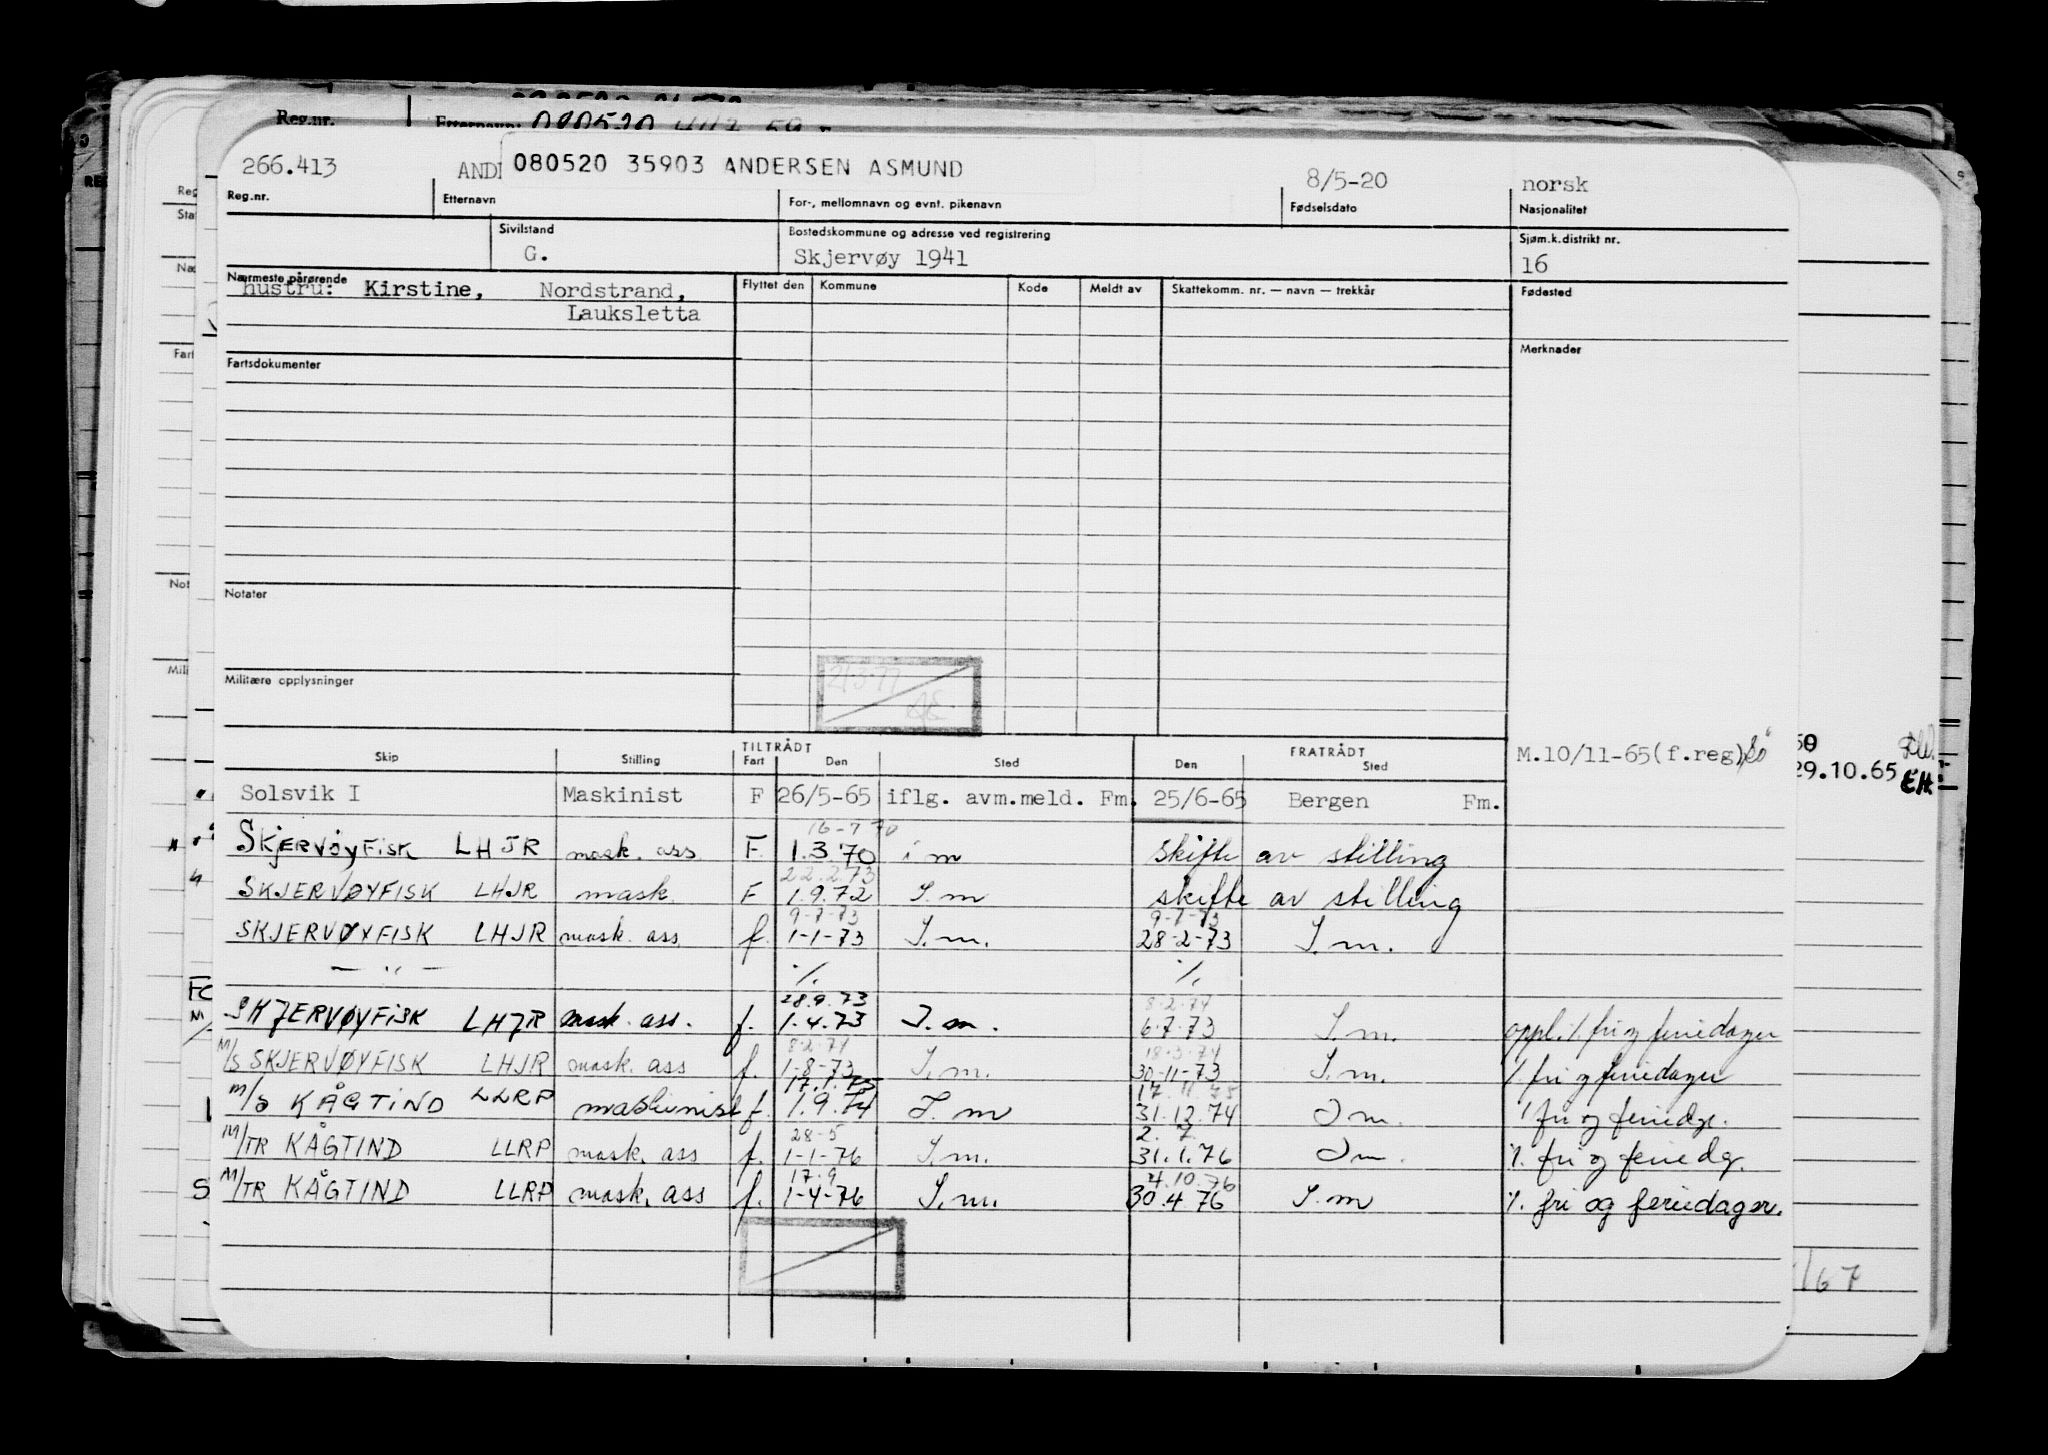 Reg.nr.
266.413 080520 35903 ANDERSEN ASMUND 8/5-20 norsk
Reg.nr. Etternavn For-, mellomnavn og evnt. pikenavn Fødselsdato Nasjonalitet
Sivilstand Bostedskommune og adresse ved registrering Sjøm.k.distrikt nr.
G. Skjervøy 1941 16
Nærmeste pårørende Flyttet den Kommune Kode Meldt av Skattekomm. nr. — navn — trekkår Fødested
hustru: Kirstine, Nordstrand,
Lauksletta
Fartsdokumenter Merknader
Notater
Militære opplysninger
21.3.77
Skip Stilling TILTRÅDT Fart Den Sted FRATRÅDT Den Sted M.10/11-65(f.reg)
29.10.65 EH.
Solsvik I Maskinist F 26/5-65 iflg. avm.meld. Fm. 25/6-65 Bergen Fm.
16-7 70
SKJERVØYFISK LHJR mask. ass F. 1.3.70 i m skifte av stilling
22.2.73
SKJERVØYFISK LHJR mask. F 1.9.72 I.m skifte av stilling
9-7-73 9-7-73
SKJERVØYFISK LHJR mask. ass f. 1-1-73 I.m. 28-2-73 I.m.
— " — ./. ./.
28.9.73 8-2-74
SKJERVØYFISK LHJR mask. ass. f. 1-4-73 I.m. 6-7-73 I.m. oppl. ./. fri og feriedager
8-2-74 18-3-74
M/S SKJERVØYFISK LHJR mask. ass f. 1-8-73 I.m. 30-11-73 I.m. ./. fri og feriedager
17.1.75
M/S KÅGTIND LLRP maskinist f. 1.9.74 I.m 31.12.74 I m. ./. fri og feriedg.
28-5 2.7.
M/TR KÅGTIND LLRP mask. ass f. 1-1-76 I.m. 31.1.76 I m. ./. fri og feriedg.
17.9 4.10.76
M/TR KÅGTIND LLRP mask. ass f. 1-4-76 I.m. 30.4.76 I.m ./. fri og feriedager.
/67